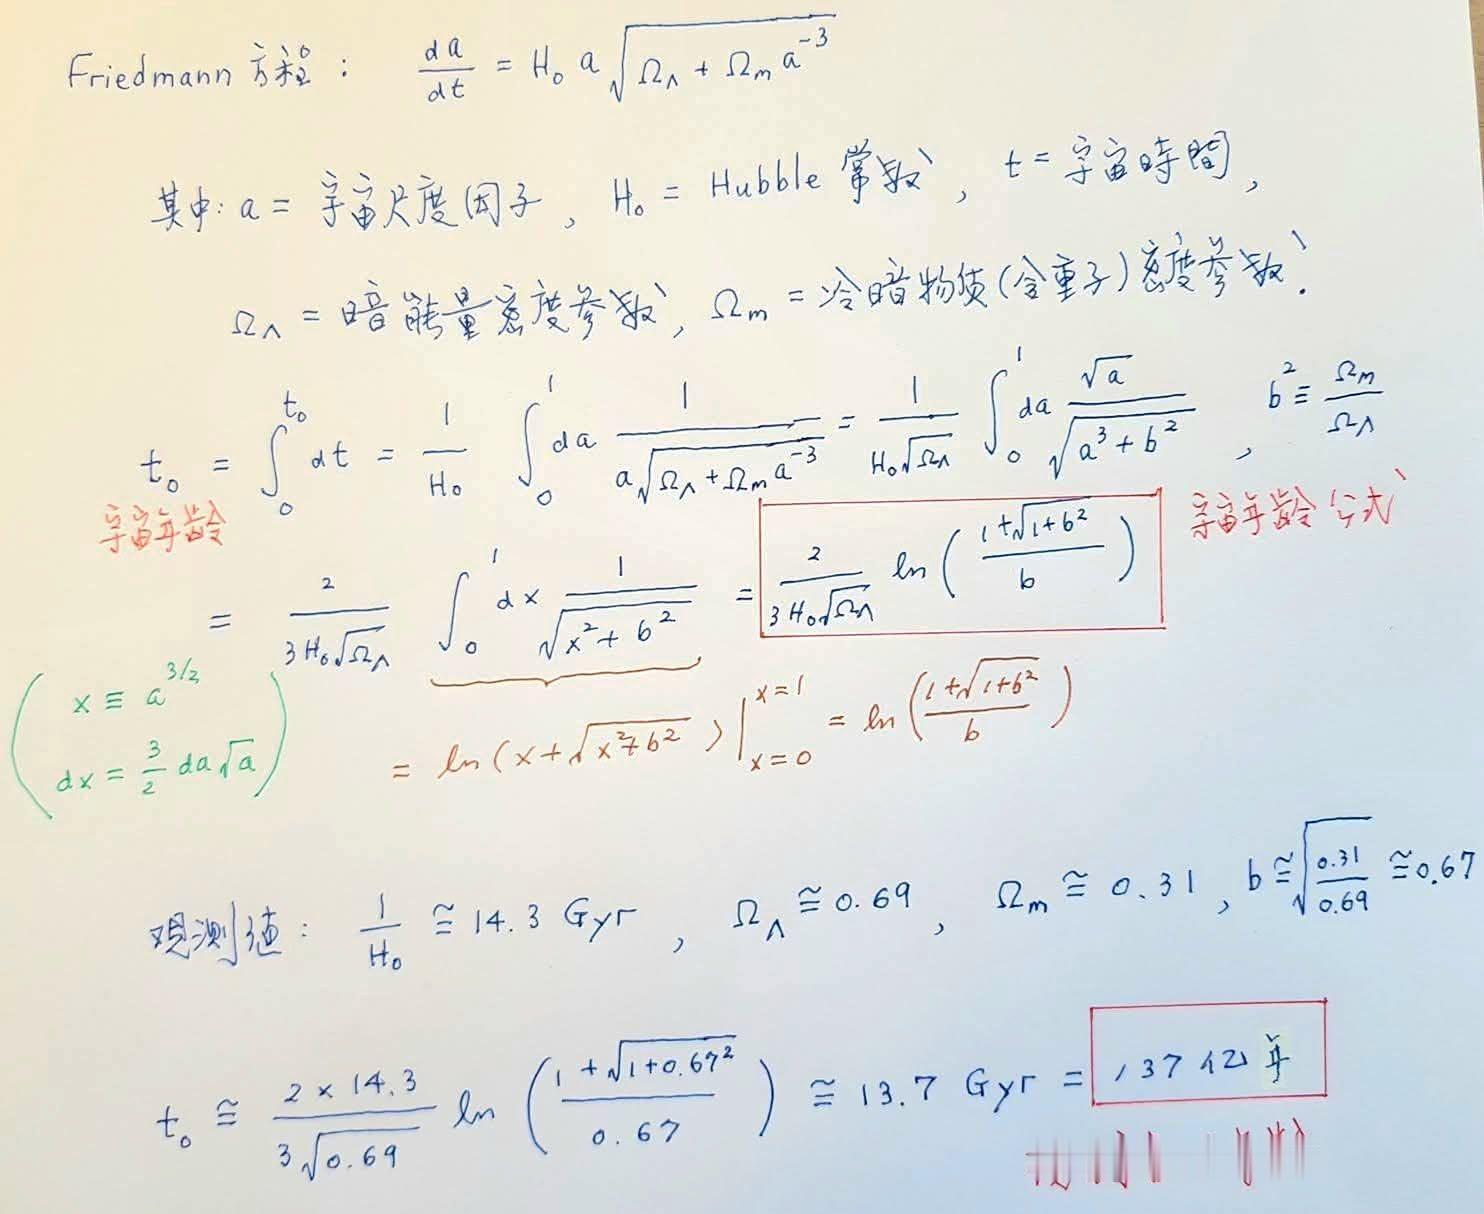 Friedmann 方程: da/dt = H₀ a √(Ω_Λ + Ω_m a⁻³)
其中: a = 宇宙尺度因子, H₀ = Hubble 常数, t = 宇宙時間,
Ω_Λ = 暗能量密度参数, Ω_m = 冷暗物質(含重子)密度参数.
t₀ = ∫₀^{t₀} dt = 1/H₀ ∫₀¹ da 1/(a√(Ω_Λ + Ω_m a⁻³)) = 1/(H₀√Ω_Λ) ∫₀¹ da √a/√(a³ + b²), b² ≡ Ω_m/Ω_Λ
宇宙年齡
= 2/(3H₀√Ω_Λ) ∫₀¹ dx 1/√(x² + b²) = 2/(3H₀√Ω_Λ) ln((1+√(1+b²))/b) 宇宙年齡公式
(x ≡ a^{3/2}
dx = 3/2 da√a)
= ln(x+√(x²+b²))|_{x=0}^{x=1} = ln((1+√(1+b²))/b)
观测值: 1/H₀ ≅ 14.3 Gyr, Ω_Λ ≅ 0.69, Ω_m ≅ 0.31, b ≅ √(0.31/0.69) ≅ 0.67
t₀ ≅ (2 × 14.3)/(3√0.69) ln((1 + √(1+0.67²))/0.67) ≅ 13.7 Gyr = 137 亿年